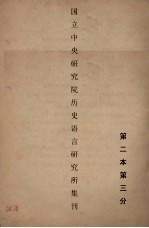 国立中央研究院历史语言研究所集刊
第二本第三分